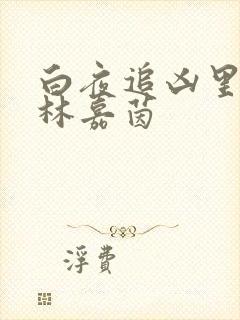 白夜追凶里
林嘉茵
浮費